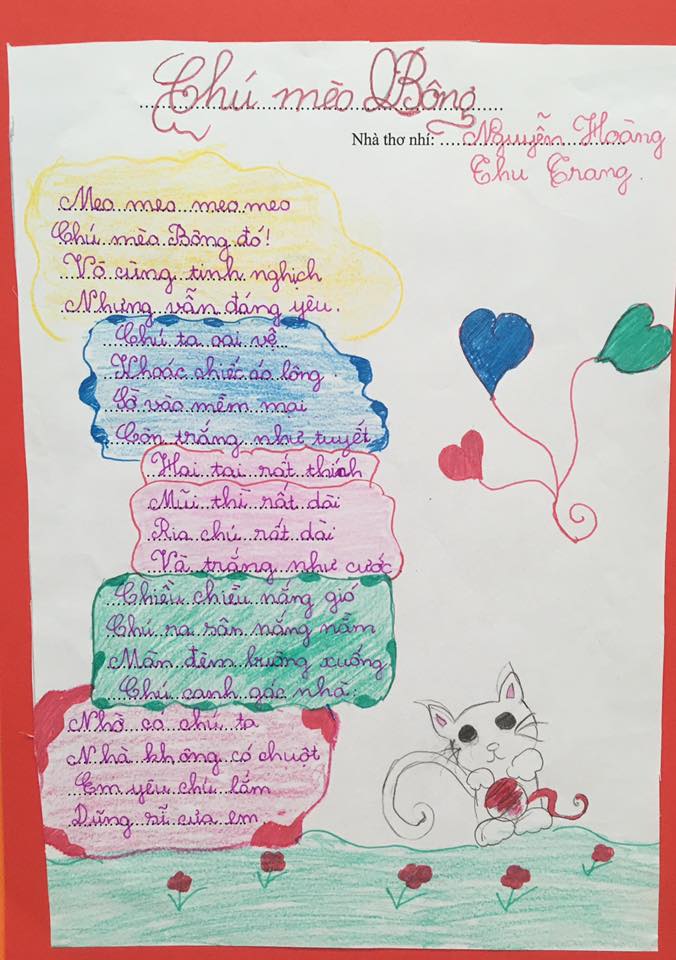 Chú mèo Bông
Nhà thơ nhí: Nguyễn Hoàng
Thu Trang.
Meo meo meo meo
Chú mèo Bông đó!
Vô cùng tinh nghịch
Nhưng vẫn đáng yêu.
Chú ta oai vệ
Khoác chiếc áo lông
Sờ vào mềm mại
Còn trắng như tuyết
Hai tai rất thính
Mũi thì rất dài
Ria chú rất dài
Và trắng như cước
Chiều chiều nắng gió
Chú ra sân nằng nằm
Màn đêm buông xuống
Chú canh gác nhà.
Nhờ có chú ta
Nhà không có chuột
Em yêu chú lắm
Dũng sĩ của em